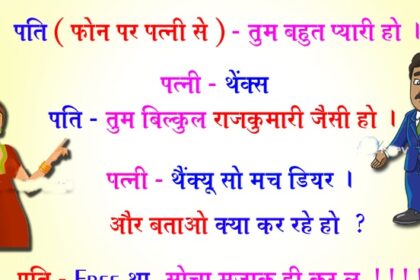 पति ( फोन पर पत्नी से ) - तुम बहुत प्यारी हो ।
पत्नी - थेंक्स
पति - तुम बिल्कुल राजकुमारी जैसी हो ।
पत्नी - थैंक्यू सो मच डियर ।
और बताओ क्या कर रहे हो ?
पति - FREE था, सोचा मजाक ही कर लूं !!!